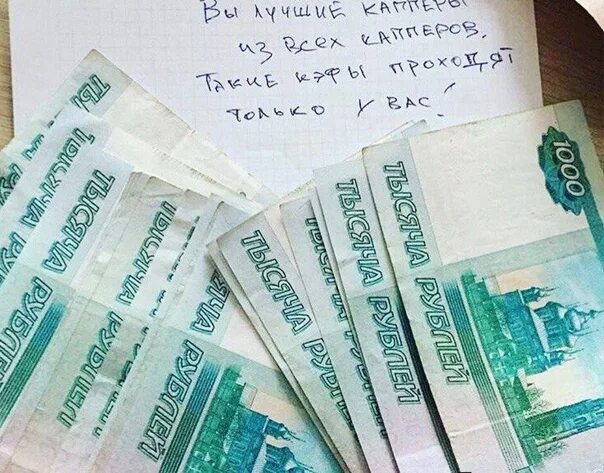 Вы лучшие капперы
из всех капперов.
Такие кэфы проходят
только у вас!
ТЫСЯЧА РУБЛЕЙ
ТЫСЯЧА РУБЛЕЙ
ТЫСЯЧА РУБЛЕЙ
ТЫСЯЧА
ТЫСЯЧА РУБЛЕЙ
ТЫСЯЧА РУБЛЕЙ
ТЫСЯЧА РУБЛЕЙ
1000